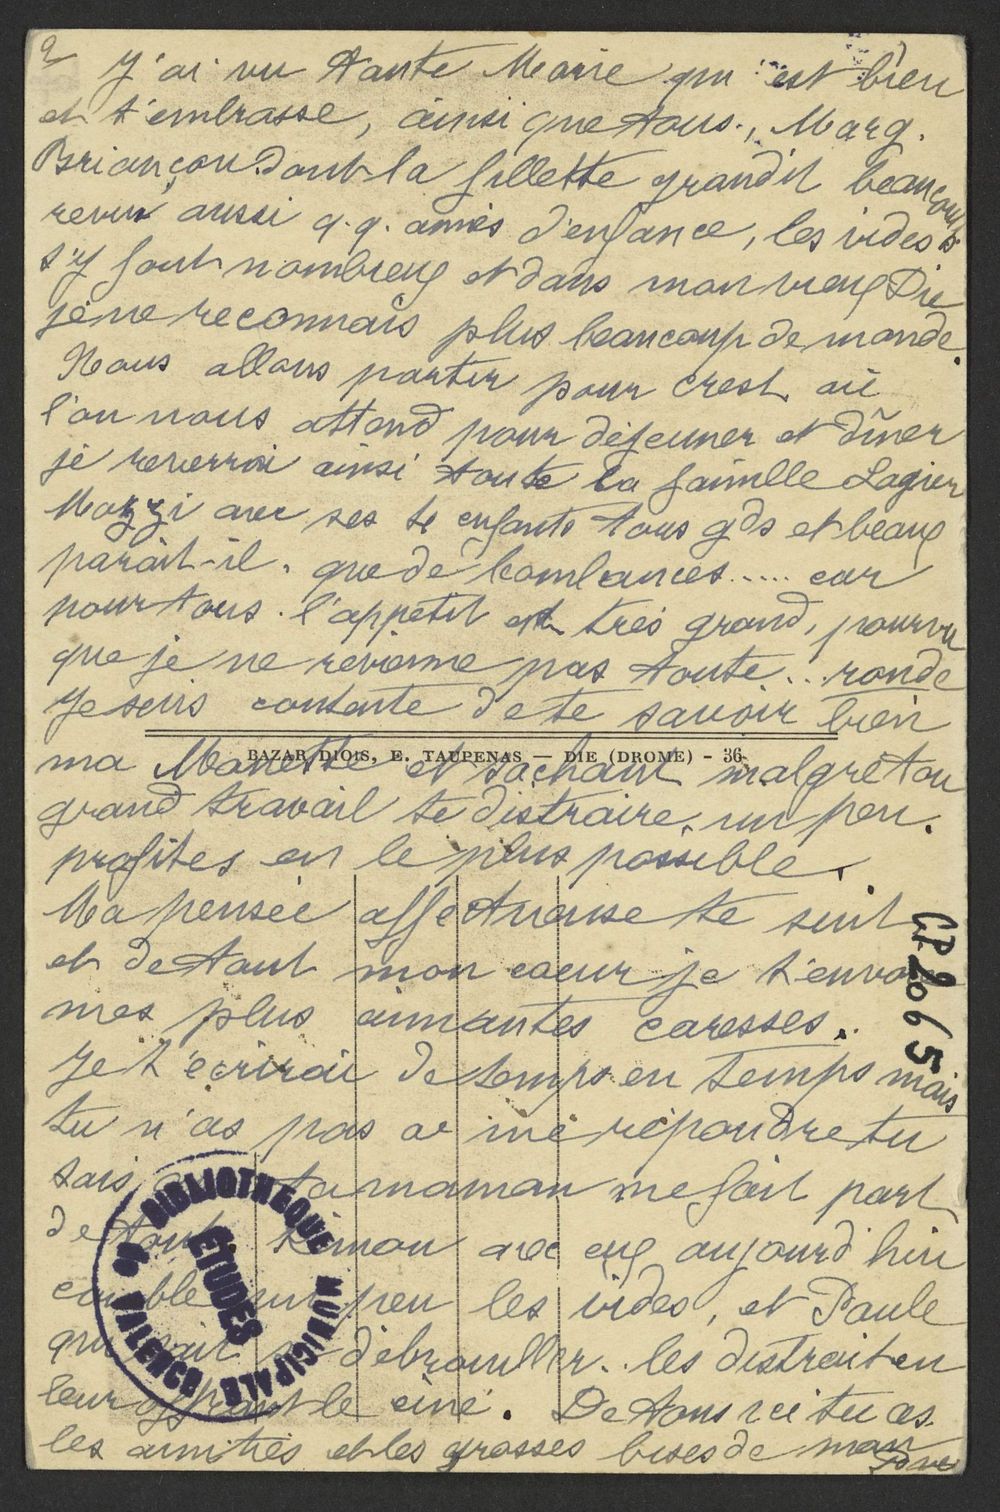 2 J'ai vu tante Marie qui est bien
et t'embrasse, ainsi que tous., Marg.
Briançon dont la fillette grandit beaucoup
revu aussi q.q. amies d'enfance, les vides
s'y font nombreux et dans mon vieux Die
je ne reconnais plus beaucoup de monde.
Nous allons partir pour Crest où
l'on nous attend pour déjeuner et dîner
je reverrai ainsi toute la famille Lagier
Mazzi avec ses enfants tous gds et beaux
paraît-il. que de bombances..... car
pour tous l'appetit est très grand, pourvu
que je ne revienne pas toute... ronde
Je suis contente de te savoir bien
BAZAR DIOIS, E. TAUPENAS — DIE (DROME) - 36
ma et sachant malgré ton
grand travail te distraire, un peu.
profites en le plus possible.
Ma pensée affectueuse te suit
et de tout mon coeur je t'envoie
mes plus aimantes caresses.
Je t'écrirai de temps en temps mais
CP 2065
tu n'as pas a me répondre tu
sais ta maman me fait part
de tout. Simon avec eux aujourd'hui
comble un peu les vides, et Paule
qui sait se débrouiller.. les distrait en
leur offrant le ciné. De tous ici tu as
les amitiés et les grosses bises de
BIBLIOTHEQUE MUNICIPALE de VALENCE
ETUDES